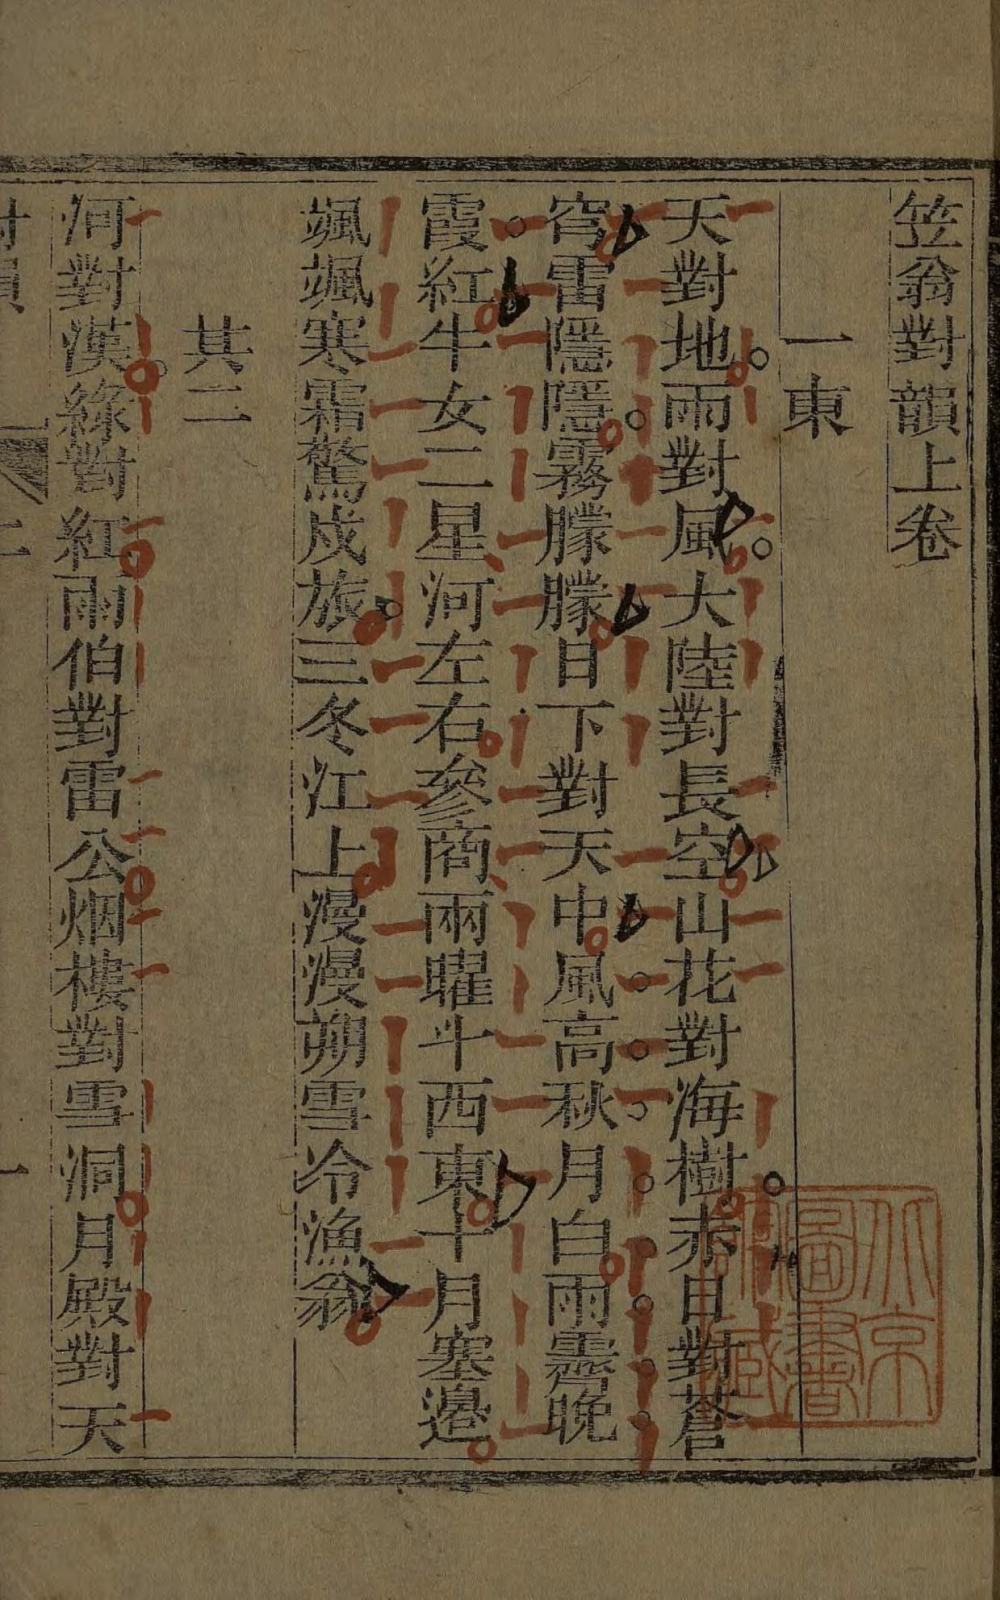 笠翁對韻上卷
一東
天對地雨對風大陸對長空山花對海樹赤日對蒼
穹雷隱隱霧朦朦日下對天中風高秋月白雨霽晚
霞紅牛女二星河左右參商兩曜斗西東十月塞邊
颯颯寒霜驚戍旅三冬江上漫漫朔雪冷漁翁
其二
河對漢綠對紅雨伯對雷公烟樓對雪洞月殿對天